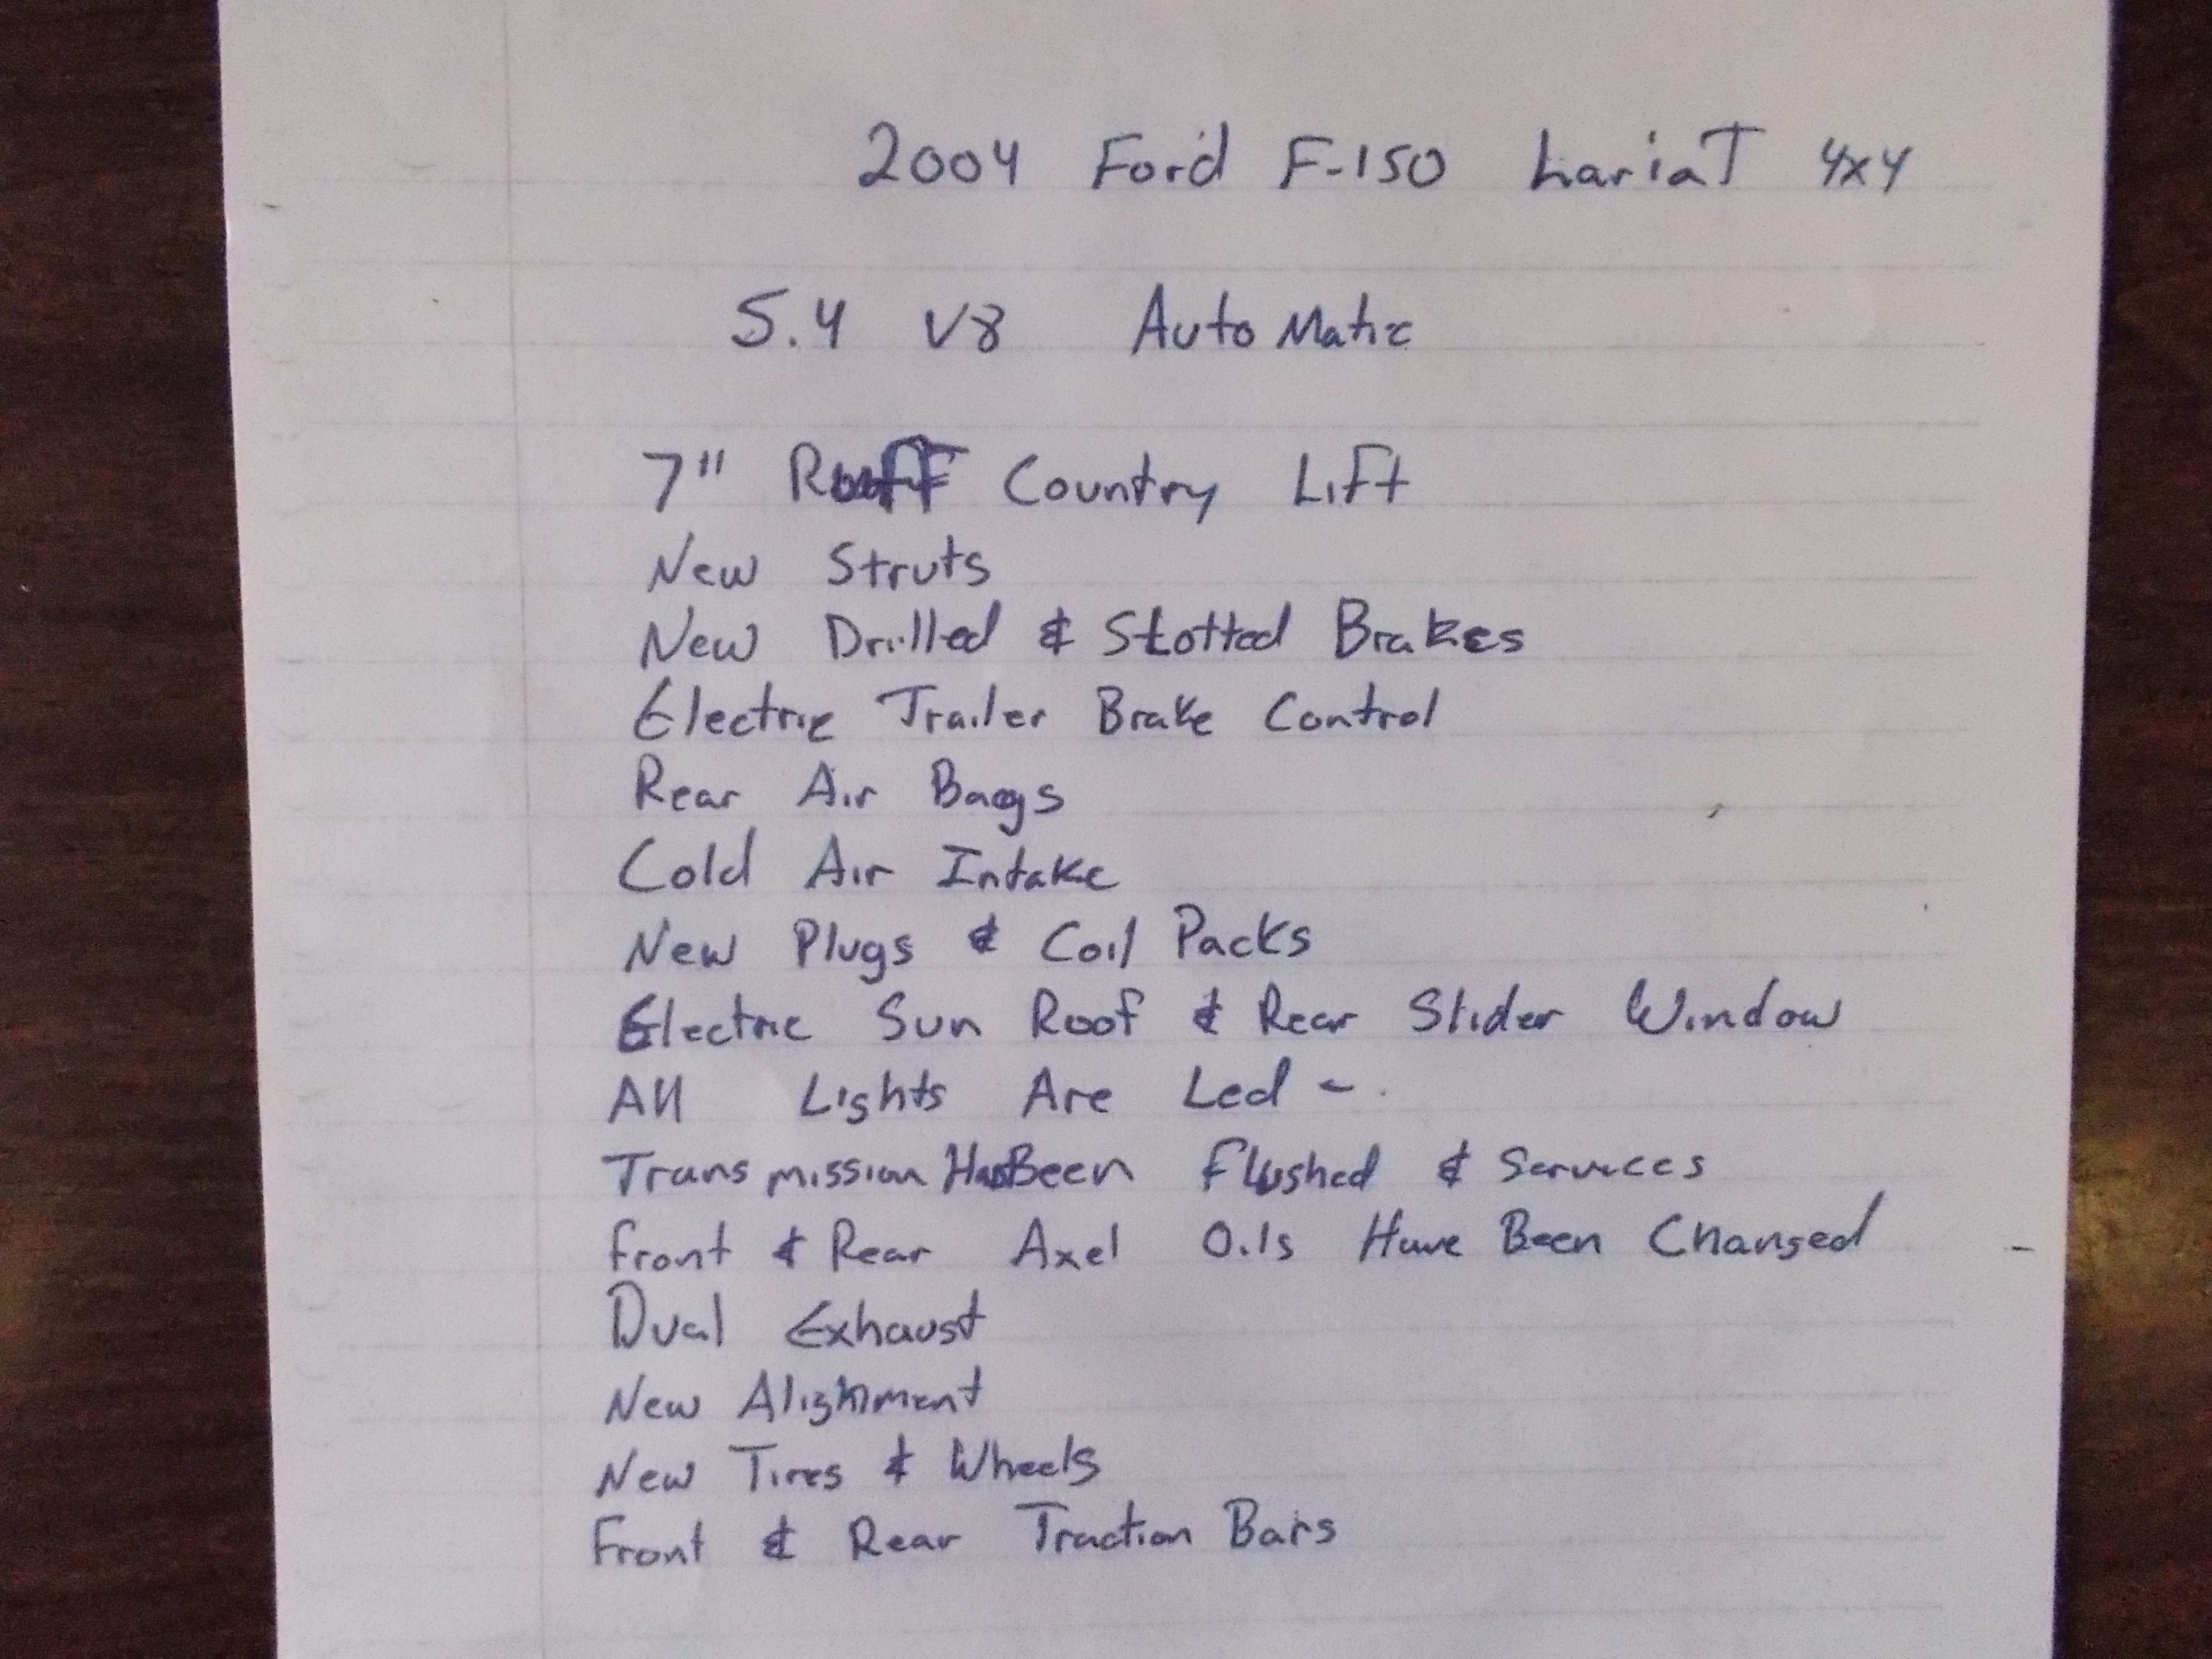 2004 Ford F-150 LariaT 4x4
5.4 V8 AutoMatic
7" Country Lift
New Struts
New Drilled & Slotted Brakes
Electric Trailer Brake Control
Rear Air Bags
Cold Air Intake
New Plugs & Coil Packs
Electric Sun Roof & Rear Slider Window
All Lights Are Led -.
Transmission Has Been Flushed & Services
Front & Rear Axel Oils Have Been Changed
Dual Exhaust
New Alighment
New Tires & Wheels
Front & Rear Traction Bars